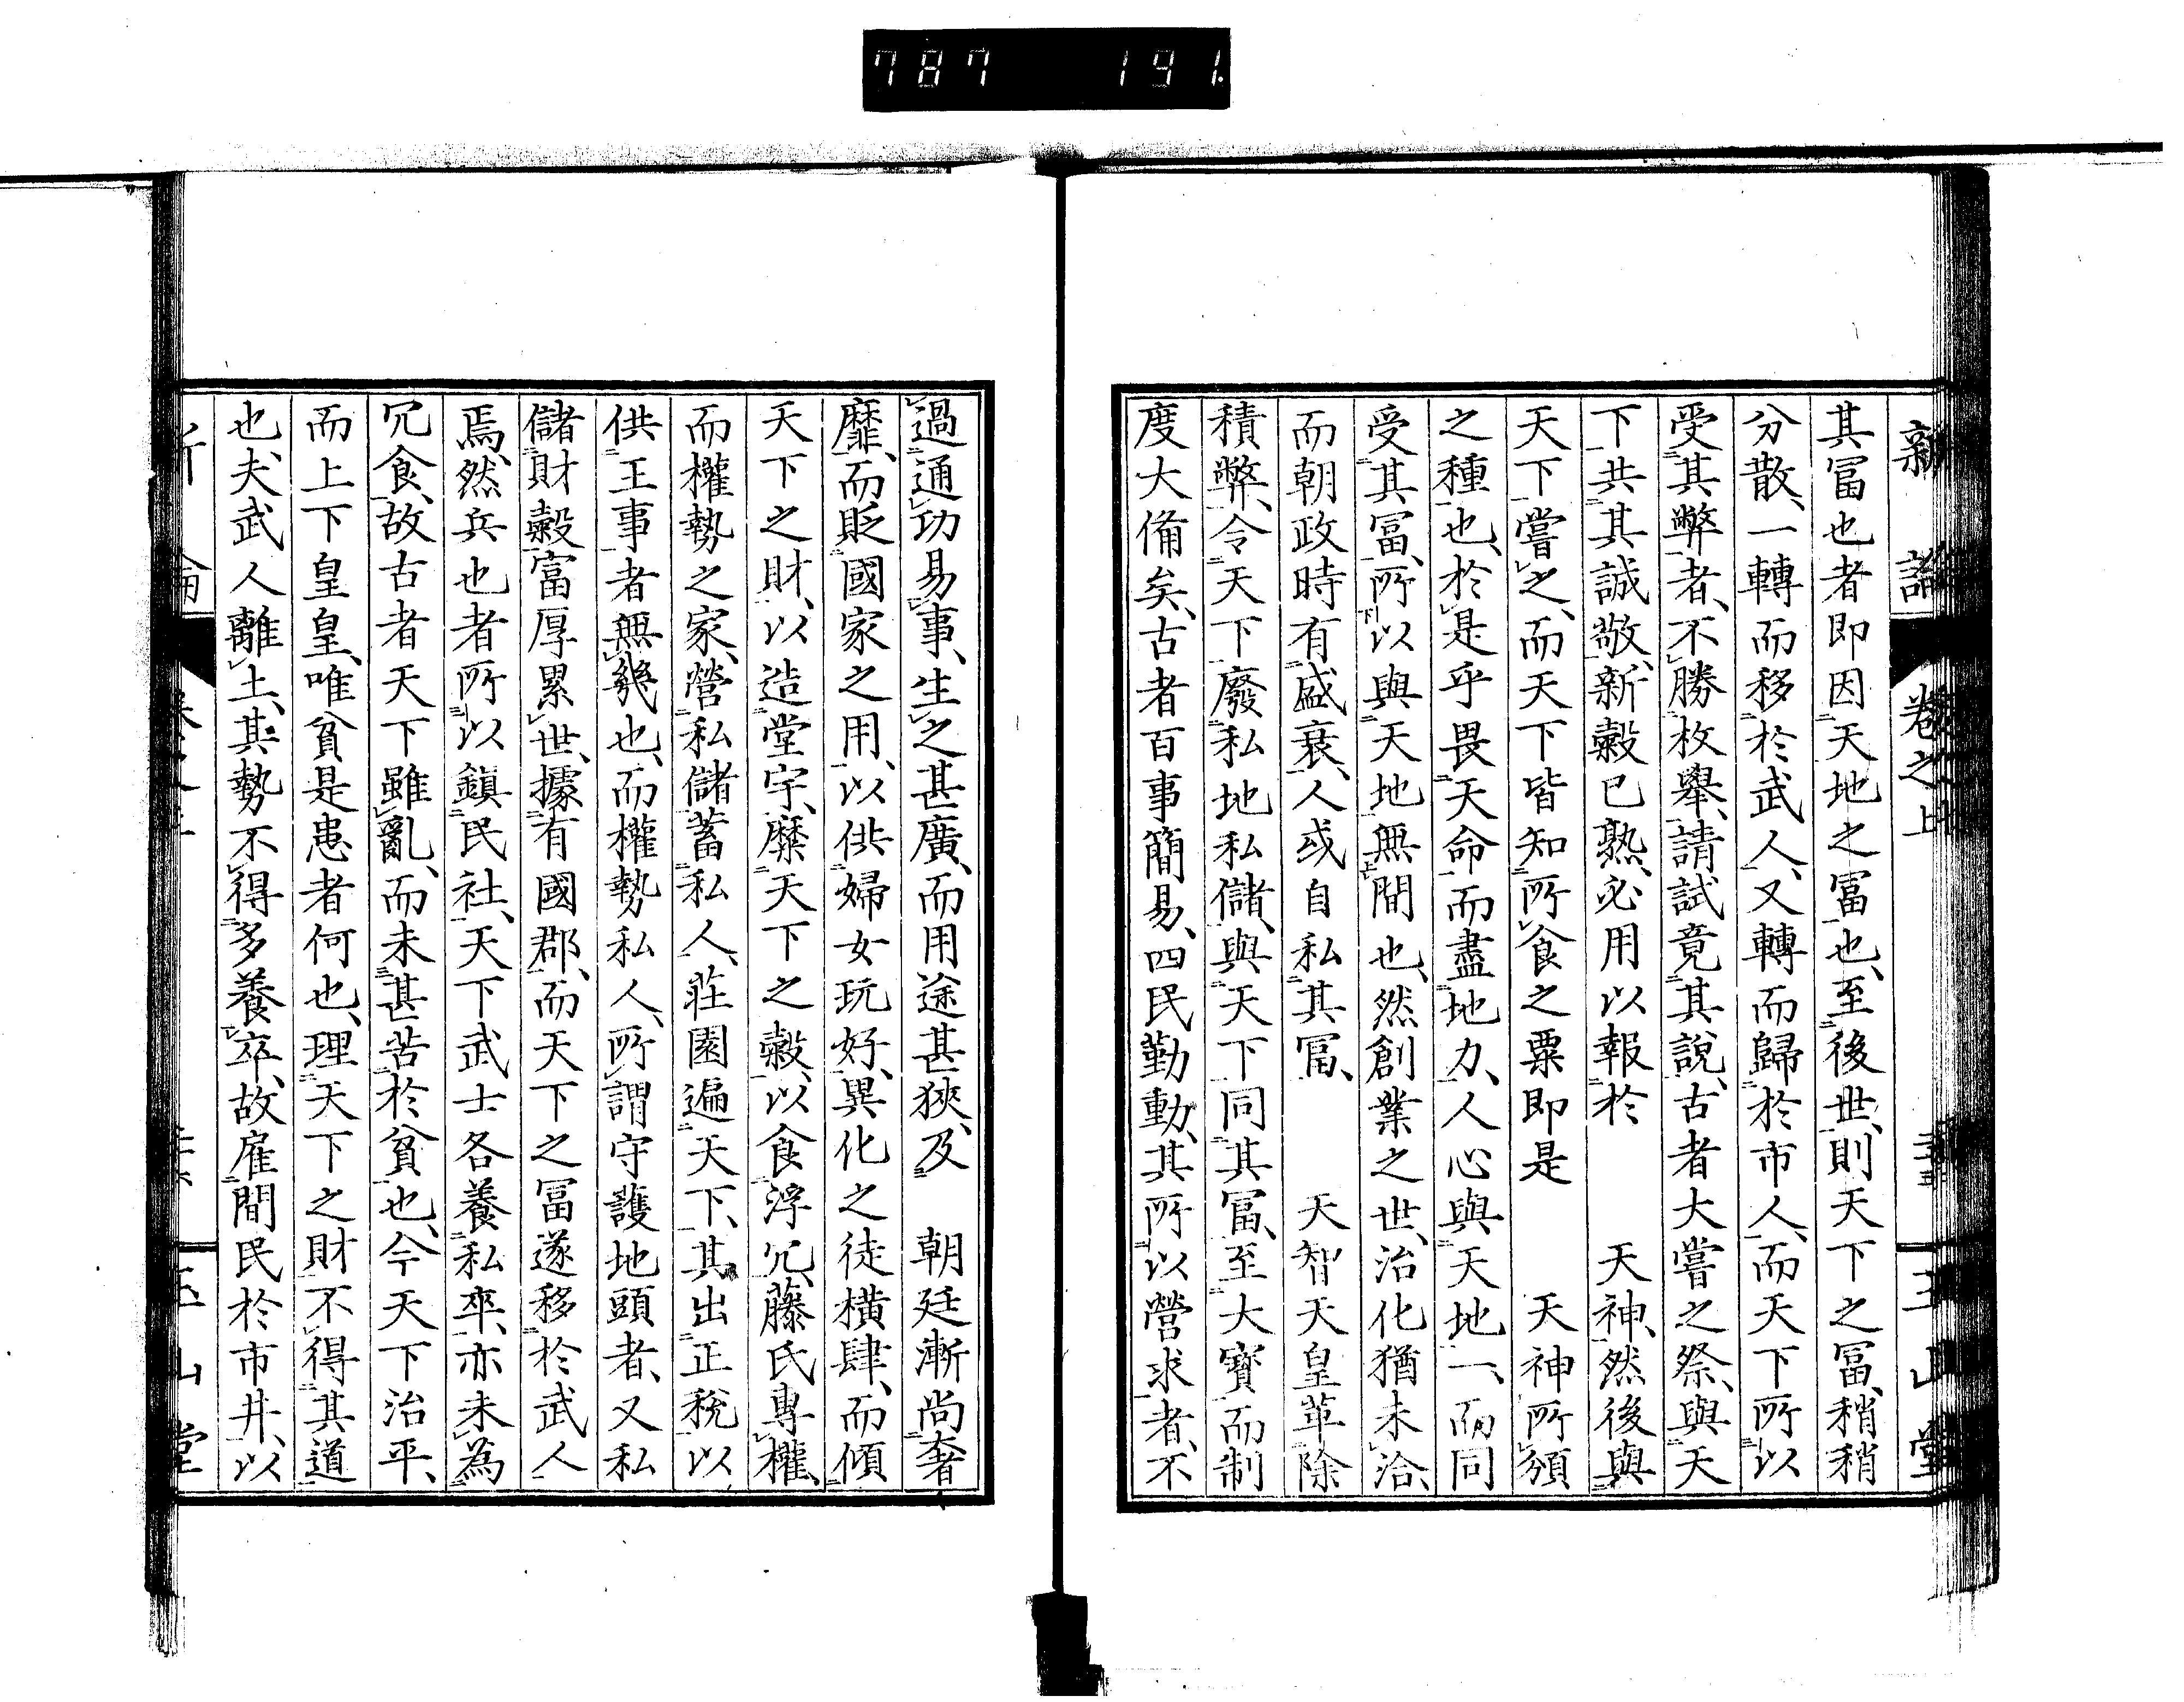 787 191.
新論 卷之上 玉山堂
其冨也者即因天地之冨也、至後世、則天下之冨、稍稍
分散、一轉而移於武人、又轉而歸於市人、而天下所以
受其弊者、不勝枚舉、請試竟其說、古者大嘗之祭、與天
下共其誠敬、新穀已熟、必用以報於 天神、然後與
天下嘗之、而天下皆知所食之粟即是 天神所頒
之種也、於是乎畏天命而盡地力、人心與天地一、而同
受其冨、所以與天地無間也、然創業之世、治化猶未洽、
而朝政時有盛衰、人或自私其冨、 天智天皇革除
積弊、令天下廢私地私儲、與天下同其冨、至大寶而制
度大備矣、古者百事簡易、四民勤動、其所以營求者、不
過通功易事、生之甚廣、而用途甚狹、及 朝廷漸尚奢
靡、而貶國家之用、以供婦女玩好、異化之徒橫肆、而傾
天下之財、以造堂宇、糜天下之穀、以食浮冗、藤氏專權、
而權勢之家、營私儲蓄私人、莊園遍天下、其出正稅以
供王事者無幾也、而權勢私人、所謂守護地頭者、又私
儲財穀富厚累世、據有國郡、而天下之冨遂移於武人
焉、然兵也者所以鎮民社、天下武士各養私卒、亦未為
冗食、故古者天下雖亂、而未甚苦於貧也、今天下治平、
而上下皇皇、唯貧是患者何也、理天下之財、不得其道
也、夫武人離土、其勢不得多養卒、故雇間民於市井、以